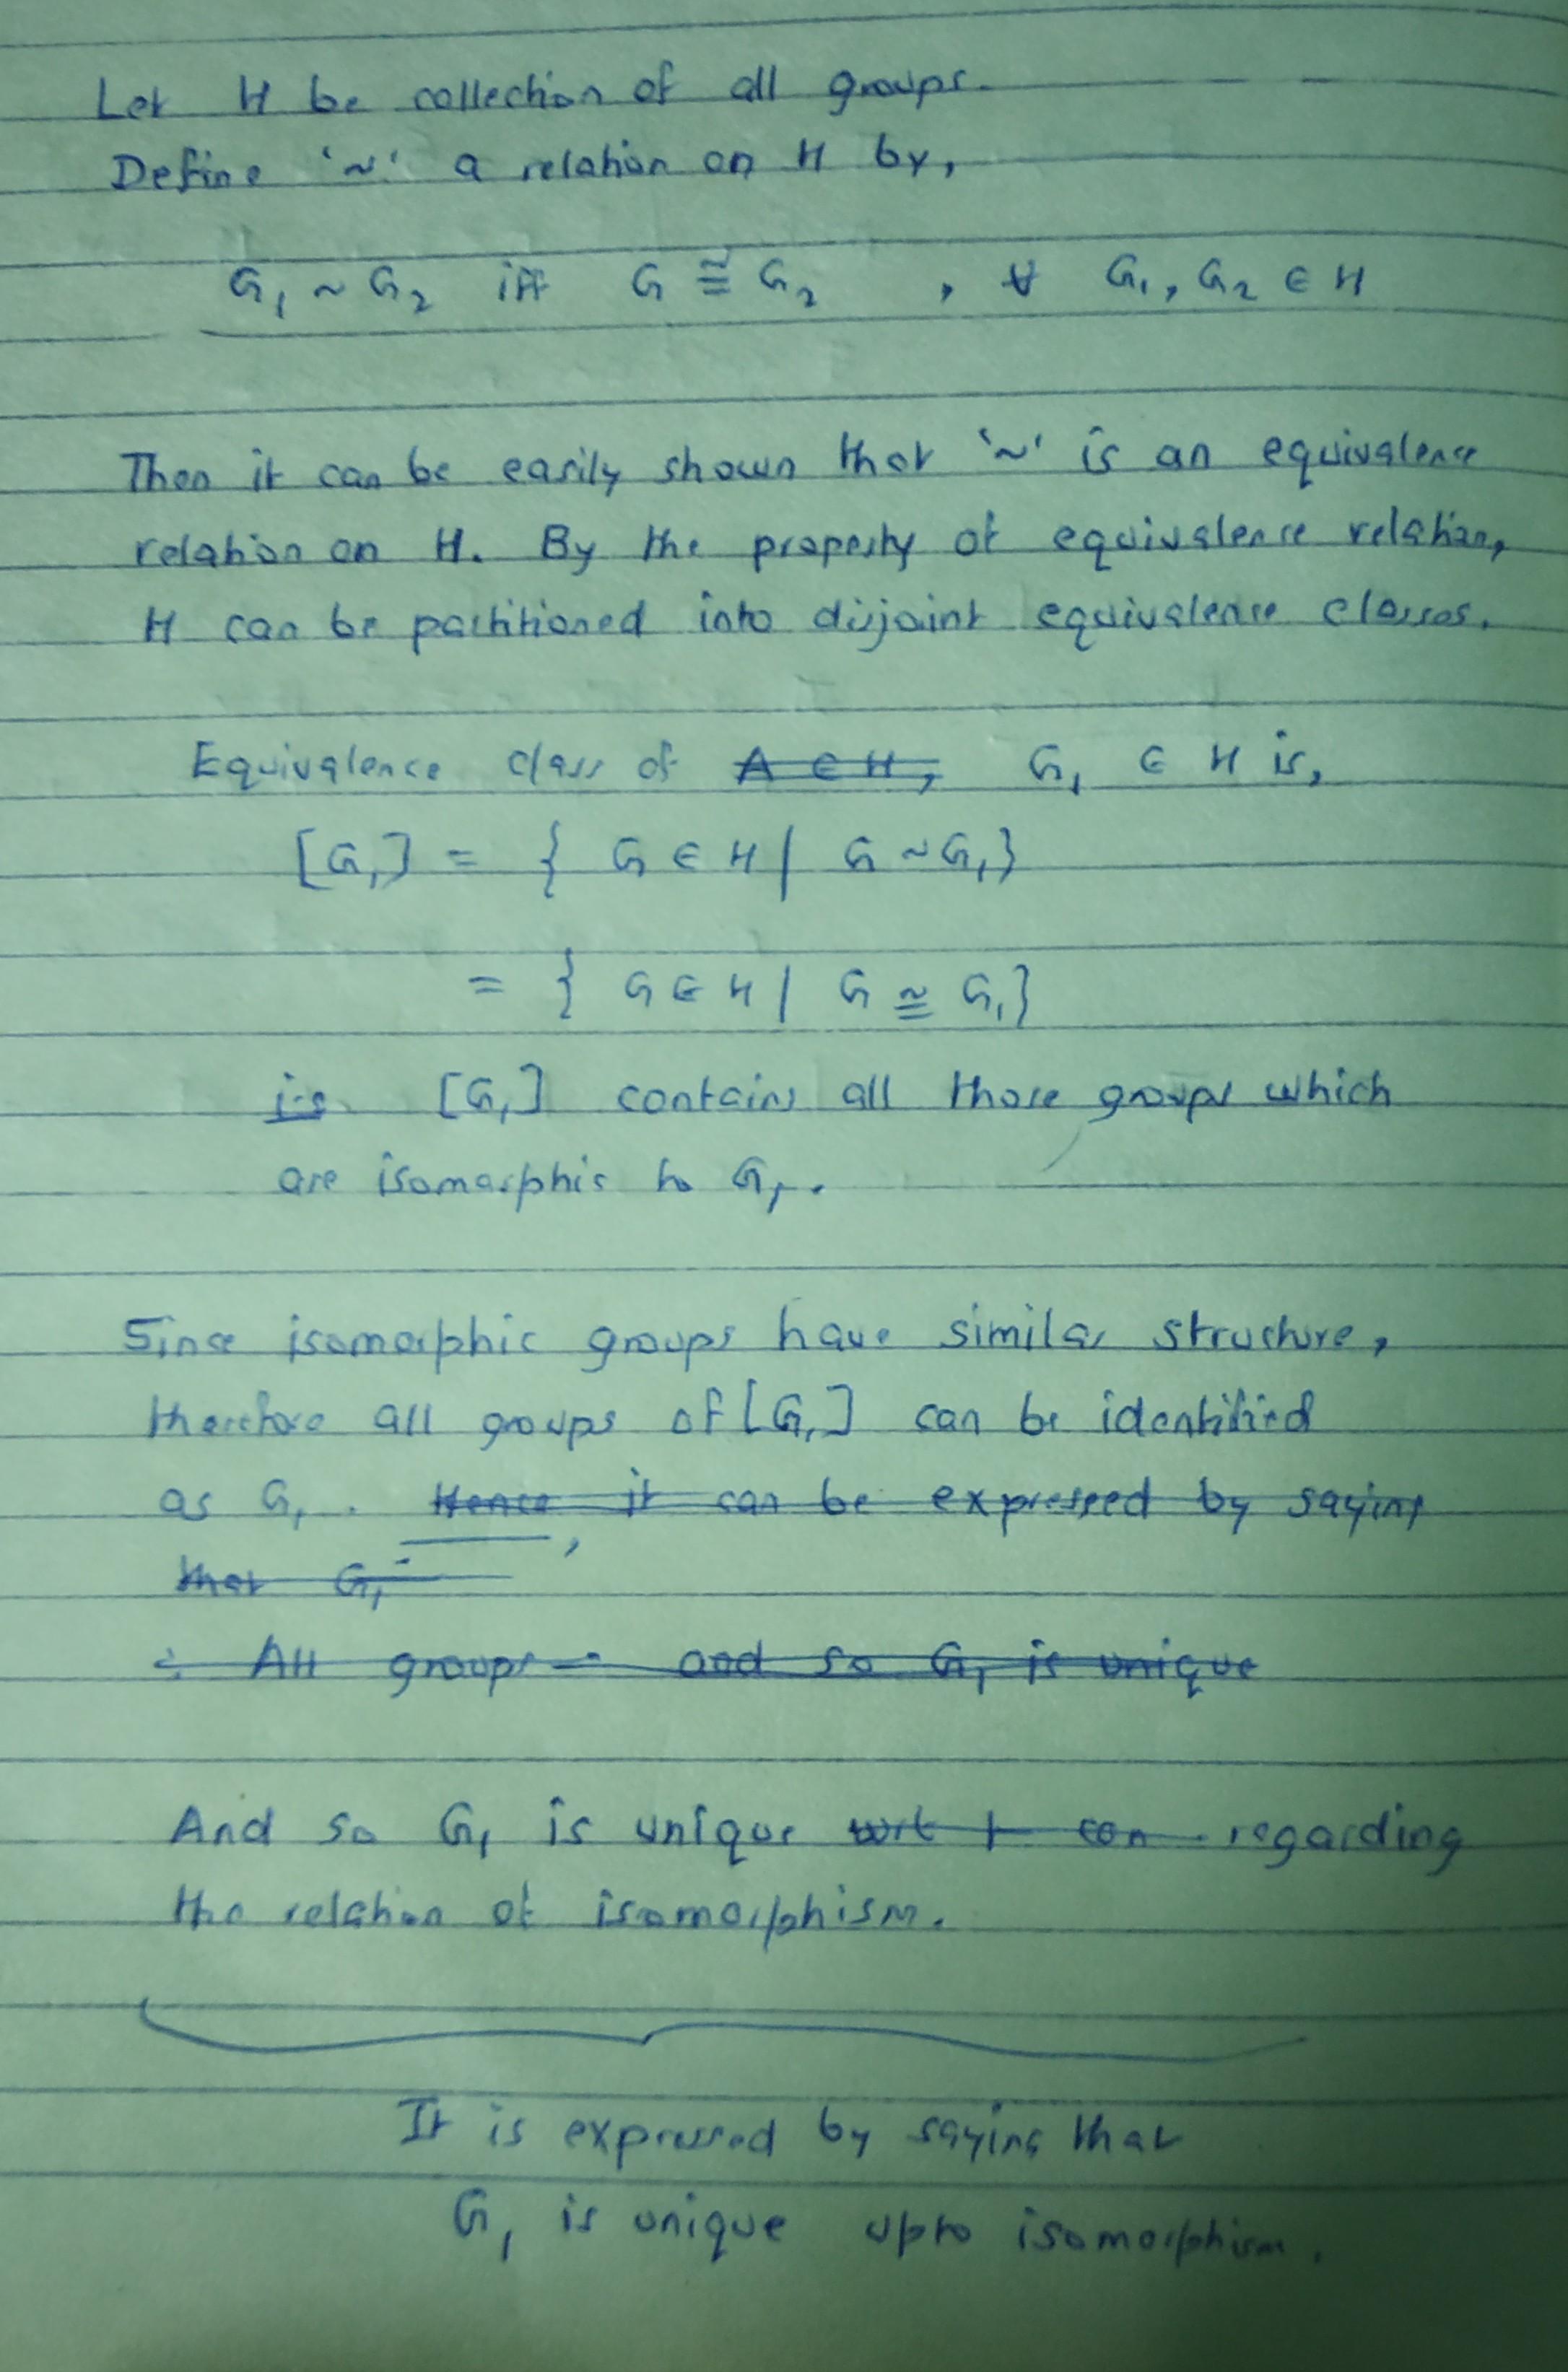 Let H be collection of all groups.
Define '~' a relation on H by,
G₁ ~ G₂ iff G ≅ G₂ , ∀ G₁, G₂ ∈ H
Then it can be easily shown that '~' is an equivalence
relation on H. By the property of equivalence relation,
H can be partitioned into disjoint equivalence classes.
Equivalence class of A ∈ H, G₁ ∈ H is,
[G₁] = { G ∈ H | G ~ G₁}
= { G ∈ H | G ≅ G₁}
i.e [G₁] contains all those groups which
are isomorphic to G₁.
Since isomorphic groups have similar structure,
therefore all groups of [G₁] can be identified
as G₁. Hence it can be expressed by saying
that G₁
∴ All groups and so G₁ is unique
And so G₁ is unique wrt regarding
the relation of isomorphism.
It is expressed by saying that
G₁ is unique upto isomorphism.